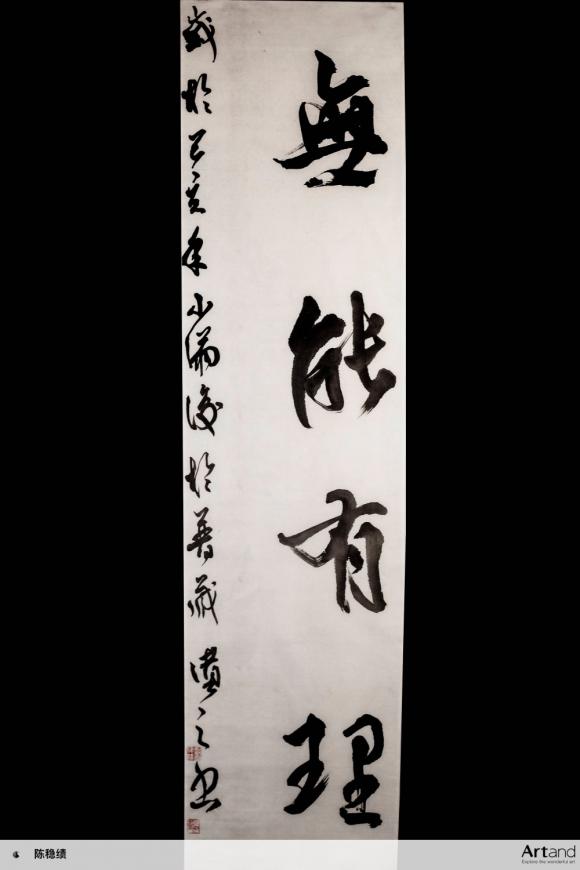 無能有理
歲於己亥年小滿後於普藏之书
陈稳绩
Artand
Explore the wonderful art